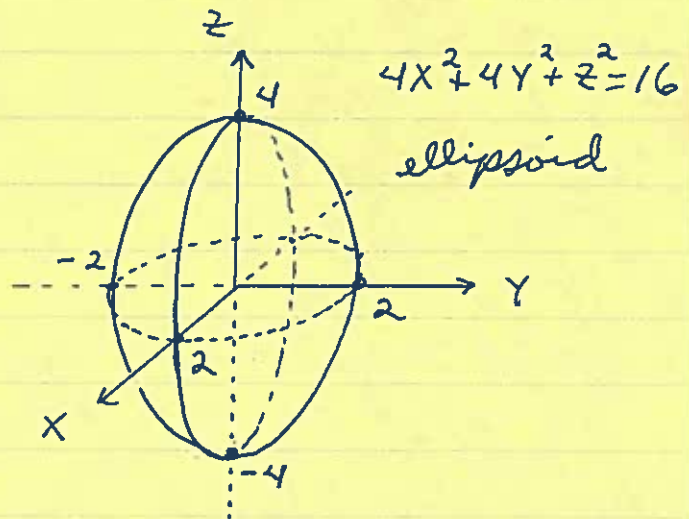 Z
4
4X²+4Y²+Z²=16
ellipsoid
-2
Y
2
2
X
-4